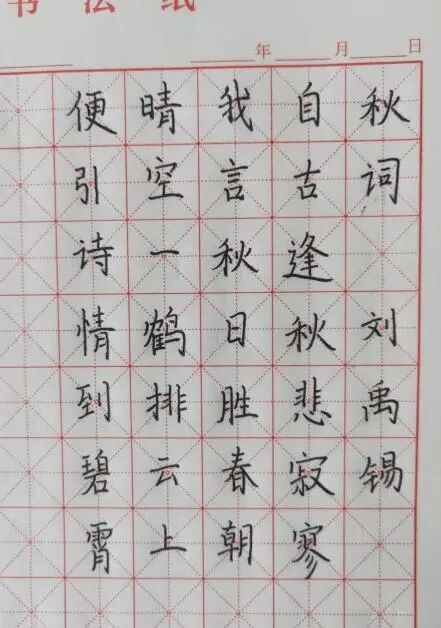 书法纸
年 月 日
秋词 刘禹锡
自古逢秋悲寂寥
我言秋日胜春朝
晴空一鹤排云上
便引诗情到碧霄